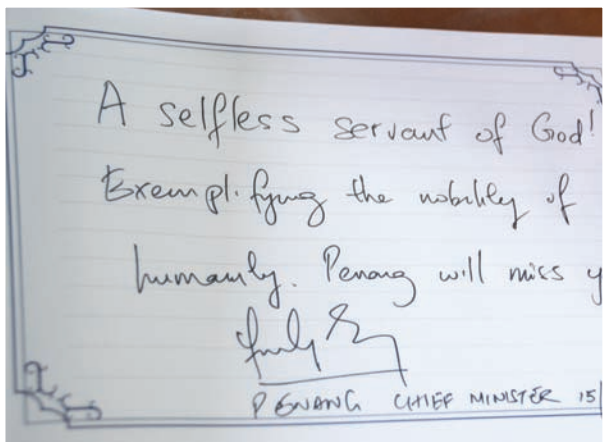 A selfless servant of God!
Exemplifying the nobility of
humanity. Penang will miss y
PENANG CHIEF MINISTER 15